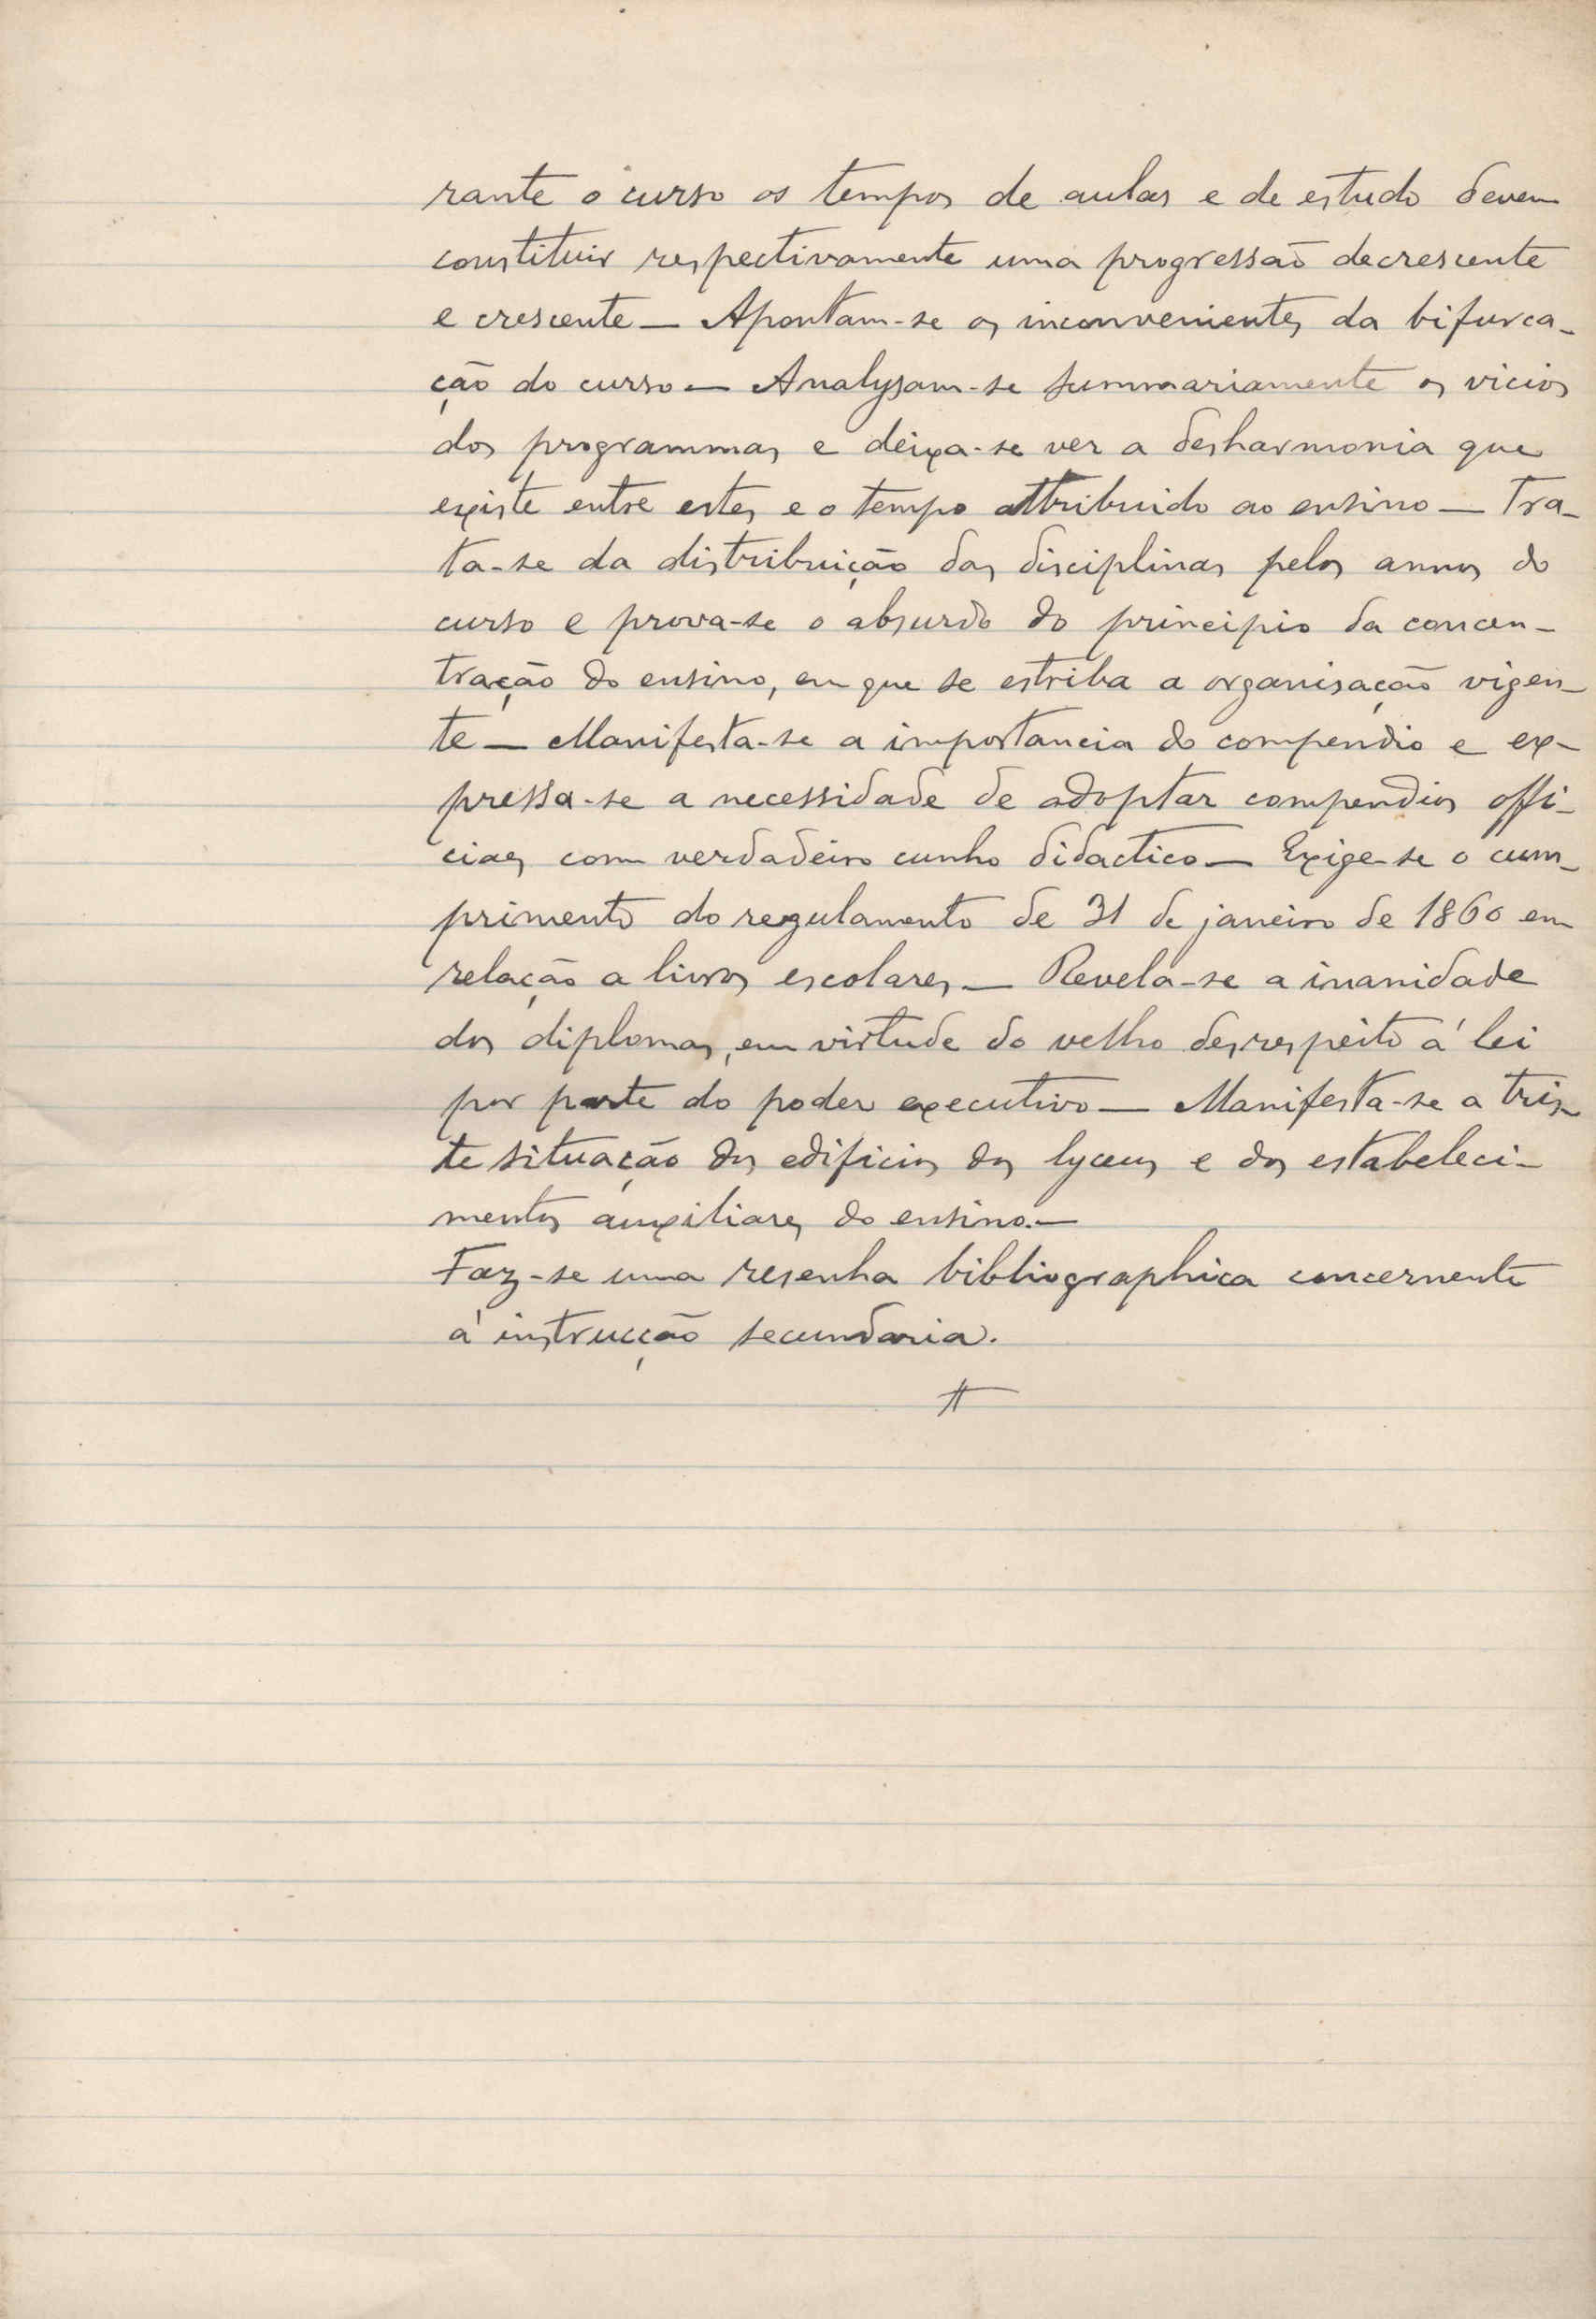 rante o curso os tempos de aulas e de estudo devem
constituir respectivamente uma progressão decrescente
e crescente — Apontam-se os inconvenientes da bifurca-
ção do curso — Analysam-se summariamente os vicios
dos programmas e deixa-se ver a desharmonia que
existe entre estes e o tempo attribuido ao ensino — Tra-
ta-se da distribuição das disciplinas pelos annos do
curso e prova-se o absurdo do principio da concen-
tração do ensino, em que se estriba a organisação vigen-
te — Manifesta-se a importancia do compendio e ex-
pressa-se a necessidade de adoptar compendios offi-
ciaes com verdadeiro cunho didactico — Exige-se o cum-
primento do regulamento de 31 de janeiro de 1860 em
relação a livros escolares — Revela-se a inanidade
dos diplomas, em virtude do velho desrespeito á lei
por parte do poder executivo — Manifesta-se a tris-
te situação dos edificios dos lyceus e dos estabeleci-
mentos auxiliares do ensino. —
Faz-se uma resenha bibliographica concernente
á instrucção secundaria.